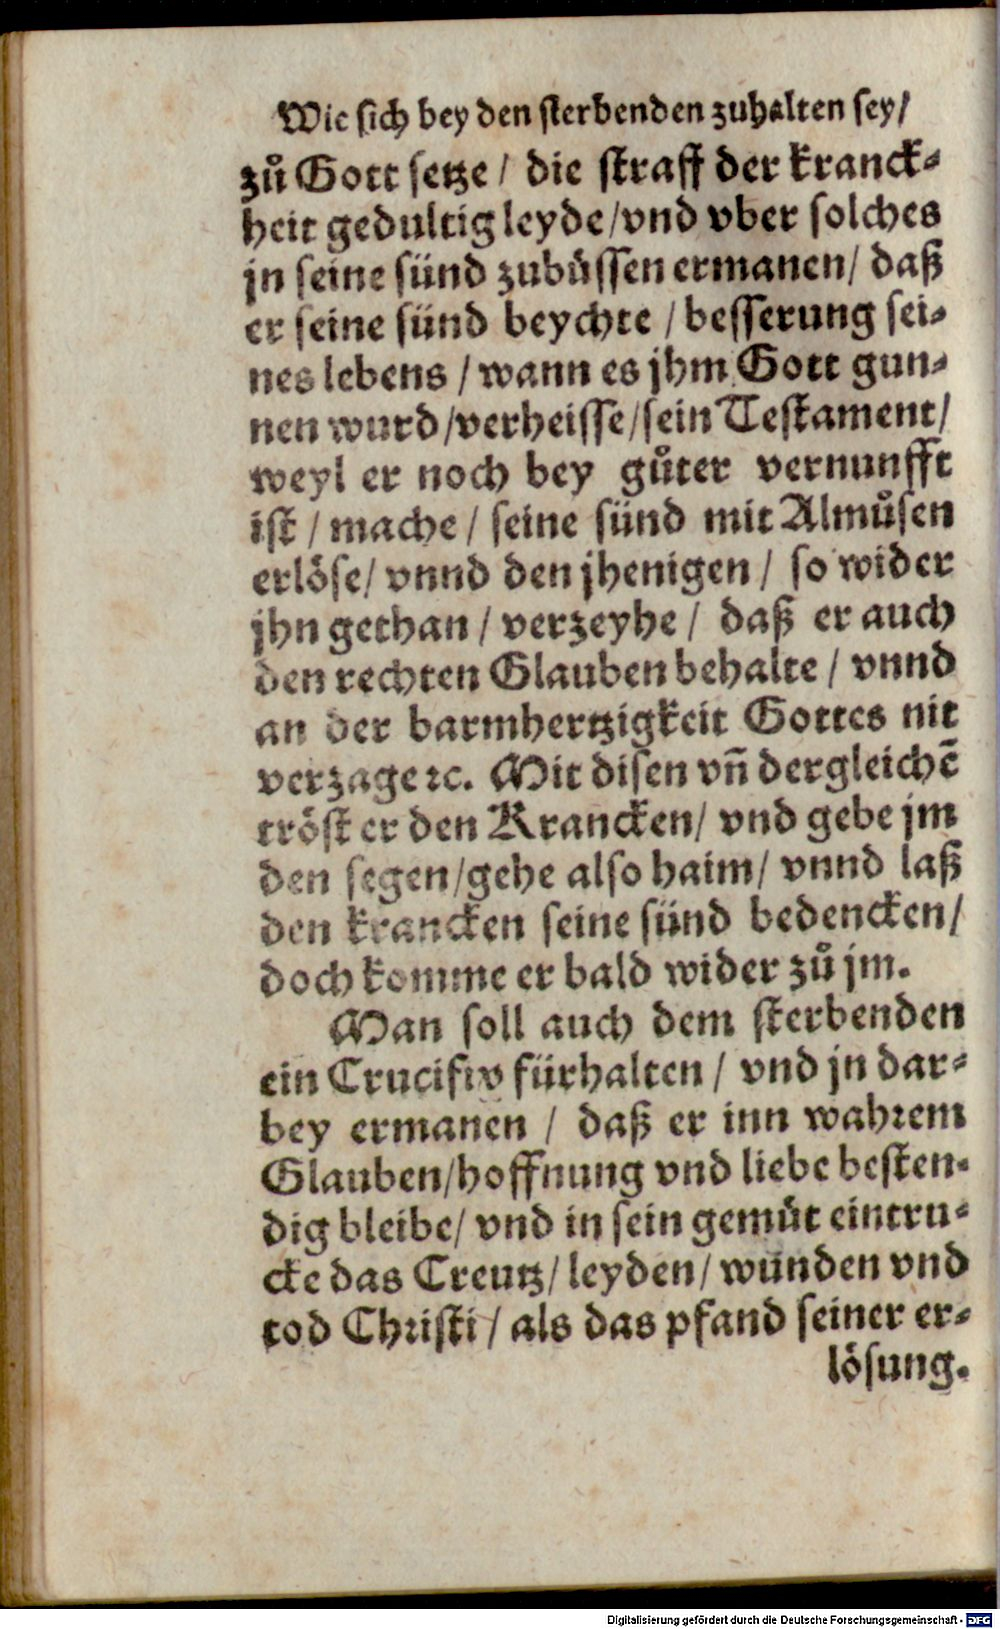 Wie sich bey den sterbenden zuhalten sey/
zů Gott setze / die straff der kranck-
heit gedultig leyde/vnd vber solches
jn seine sünd zubüssen ermanen/ daß
er seine sünd beychte / besserung sei-
nes lebens / wann es jhm Gott gun-
nen wurd/verheisse/sein Testament/
weyl er noch bey gůter vernunfft
ist / mache / seine sünd mit Almůsen
erlöse/ vnnd den jhenigen / so wider
jhn gethan / verzeyhe / daß er auch
den rechten Glauben behalte / vnnd
an der barmhertzigkeit Gottes nit
verzage ꝛc. Mit disen vñ dergleichē
tröst er den Krancken/ vnd gebe jm
den segen/gehe also haim/ vnnd laß
den krancken seine sünd bedencken/
doch komme er bald wider zů jm.
Man soll auch dem sterbenden
ein Crucifix fürhalten / vnd jn dar-
bey ermanen / daß er inn wahrem
Glauben/hoffnung vnd liebe besten-
dig bleibe/ vnd in sein gemüt eintru-
cke das Creutz/ leyden/ wunden vnd
tod Christi / als das pfand seiner er-
lösung.
Digitalisierung gefördert durch die Deutsche Forschungsgemeinschaft - DFG